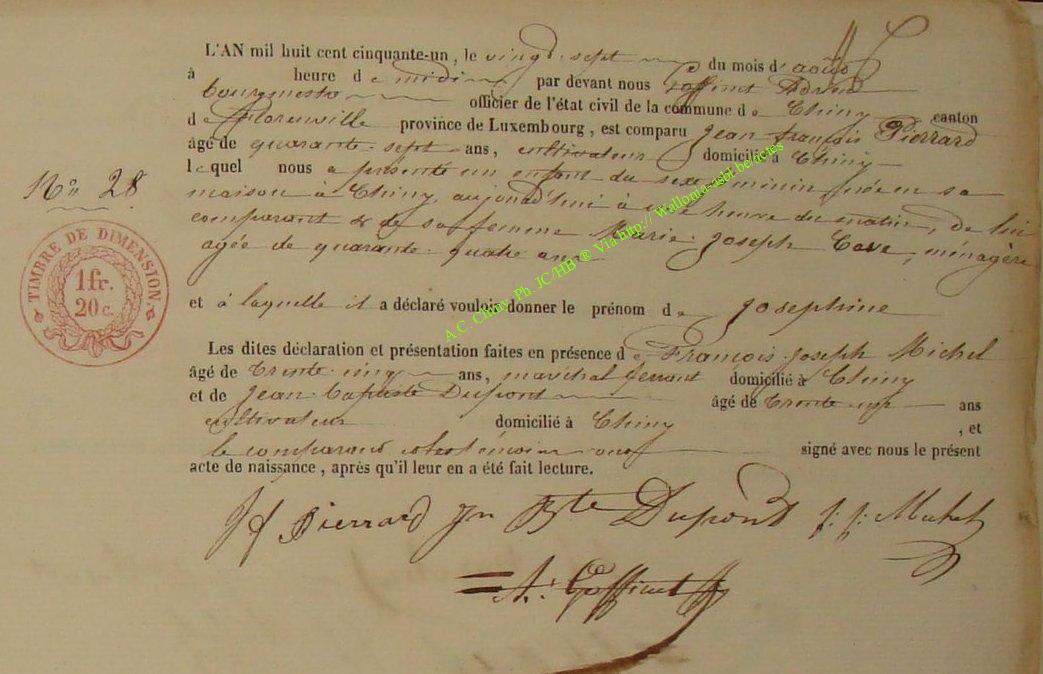 L'AN mil huit cent cinquante-un, le vingt sept du mois d'août
à heure de midi par devant nous Goffinet Adrien
bourgmestre officier de l'état civil de la commune de Chiny canton
de Florenville province de Luxembourg, est comparu Jean François Pierrard
âgé de quarante-sept ans, cultivateur domicilié à Chiny
lequel nous a présenté un enfant du sexe minin née en sa
N° 28
maison à Chiny, aujourd'hui à une heure du matin, de lui
comparant & de sa femme Marie-Joseph ménagère
agée de quarante-quatre ans
TIMBRE DE DIMENSION.
1 fr.
20 c.
et à laquelle il a déclaré vouloir donner le prénom de Josephine
Les dites déclaration et présentation faites en présence de François-Joseph Michel
âgé de trente-cinq ans, maréchal ferrant domicilié à Chiny
et de Jean-Baptiste Dupont âgé de trente ans
cultivateur domicilié à Chiny, et
le comparant signé avec nous le présent
acte de naissance, après qu'il leur en a été fait lecture.
Jf Pierrard Jn Bte Dupont f: j: Michel
A: Goffinet
A.C. Chiny Ph. JC/HB ® Via http://Wallonia-asbl.be/actes